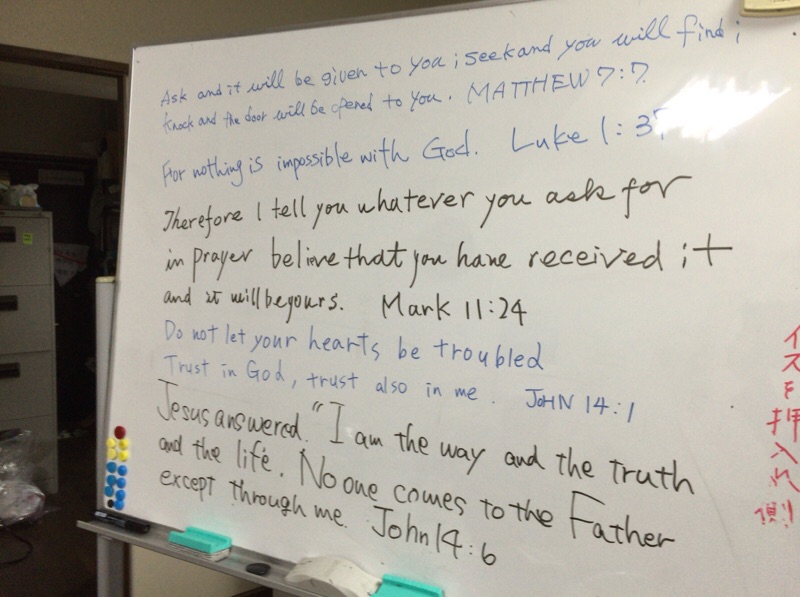 Ask and it will be given to you ; seek and you will find ;
knock and the door will be opened to you. MATTHEW 7:7
For nothing is impossible with God. Luke 1:37
Therefore I tell you whatever you ask for
in prayer belive that you have received it
and it will be yours. Mark 11:24
Do not let your hearts be troubled
Trust in God, trust also in me. JOHN 14:1
Jesus answered. "I am the way and the truth
and the life. No one comes to the Father
except through me. John 14:6
イスを押入れ側